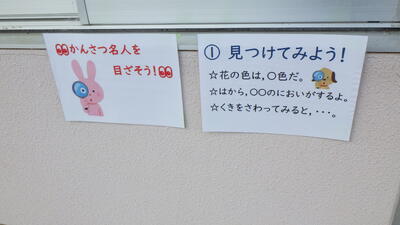 かんさつ名人を
目ざそう!
① 見つけてみよう!
☆花の色は,○色だ。
☆はから,○○のにおいがするよ。
☆くきをさわってみると,・・・。